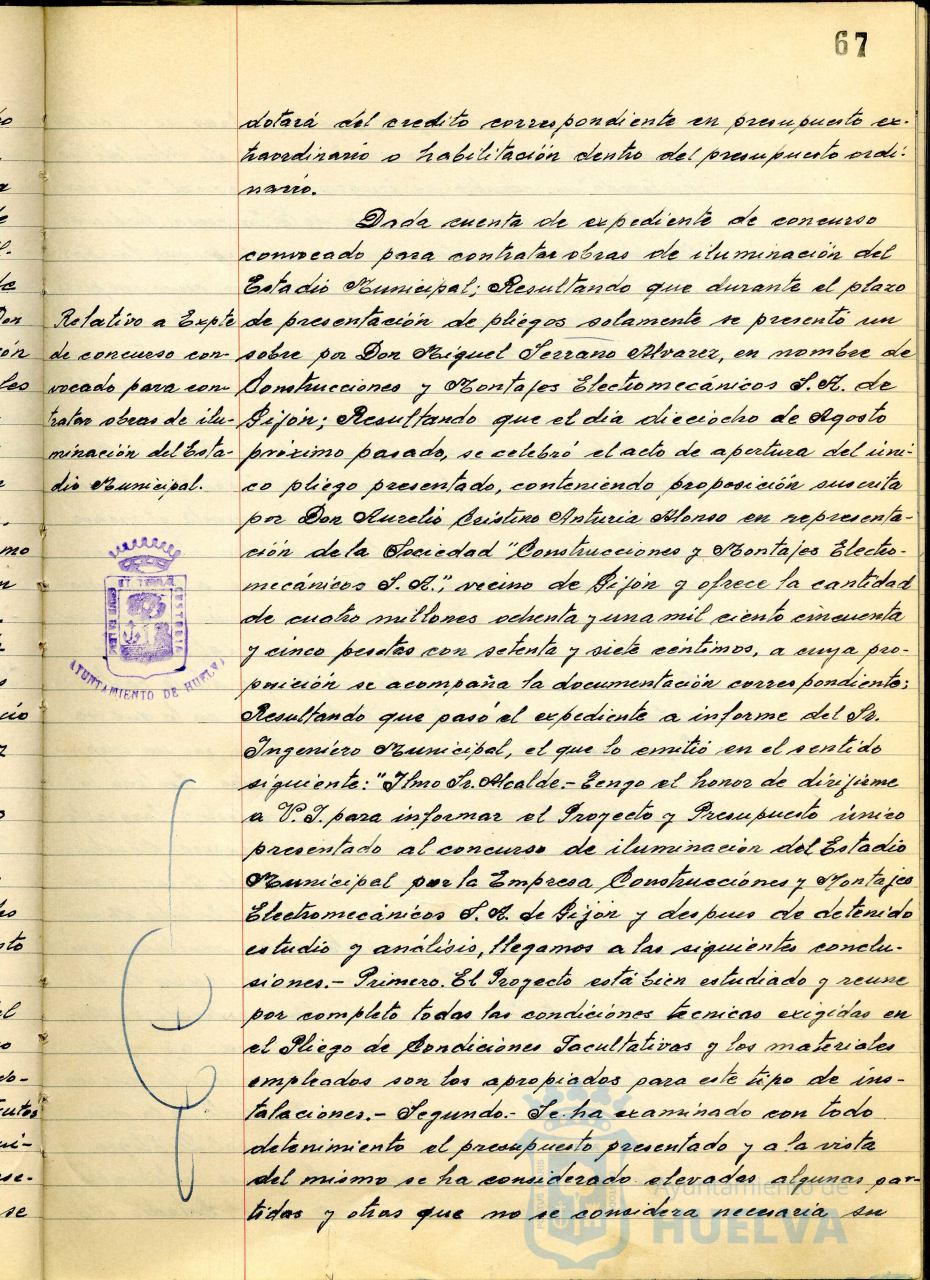 67
dotará del credito correspondiente en presupuesto ex-
traordinario o habilitación dentro del presupuesto ordi-
nario.
Dada cuenta de expediente de concurso
convocado para contratar obras de iluminación del
Estadio Municipal; Resultando que durante el plazo
de presentación de pliegos solamente se presentó un
sobre por Don Miguel Serrano Alvarez, en nombre de
Construcciones y Montajes Electromecánicos S.A. de
Gijón; Resultando que el dia dieciocho de Agosto
próximo pasado, se celebró el acto de apertura del úni-
co pliego presentado, conteniendo proposición suscrita
por Don Aurelio Cristino Anturia Alonso en representa-
ción de la Sociedad "Construcciones y Montajes Electro-
mecánicos S.A.", vecino de Gijón y ofrece la cantidad
de cuatro millones ochenta y una mil ciento cincuenta
y cinco pesetas con setenta y siete centimos, a cuya pro-
posición se acompaña la documentación correspondiente;
Resultando que pasó el expediente a informe del Sr.
Ingeniero Municipal, el que lo emitió en el sentido
siguiente: "Ilmo Sr. Alcalde.- Tengo el honor de dirijirme
a V.I. para informar el Proyecto y Presupuesto único
presentado al concurso de iluminación del Estadio
Municipal por la Empresa Construcciones y Montajes
Electromecánicos S.A. de Gijón y despues de detenido
estudio y análisis, llegamos a las siguientes conclu-
siones.- Primero. El Proyecto está bien estudiado y reune
por completo todas las condiciones tecnicas exigidas en
el Pliego de Condiciones Facultativas y los materiales
empleados son los apropiados para este tipo de ins-
talaciones.- Segundo.- Se ha examinado con todo
detenimiento el presupuesto presentado y a la vista
del mismo se ha considerado elevadas algunas par-
tidas y otras que no se considera necesaria su
Relativo a Expte
de concurso con-
vocado para con-
tratar obras de ilu-
minación del Esta-
dio Municipal.
AYUNTAMIENTO DE HUELVA
Ayuntamiento de
HUELVA